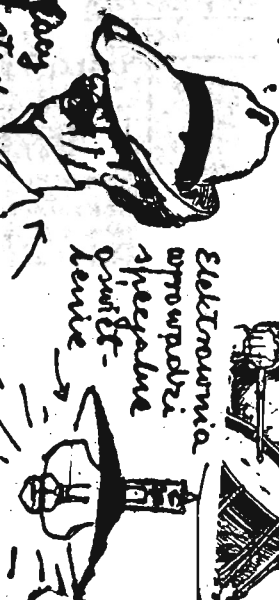 Elektrownia
wprowadzi
specjalne
oświet-
lenie